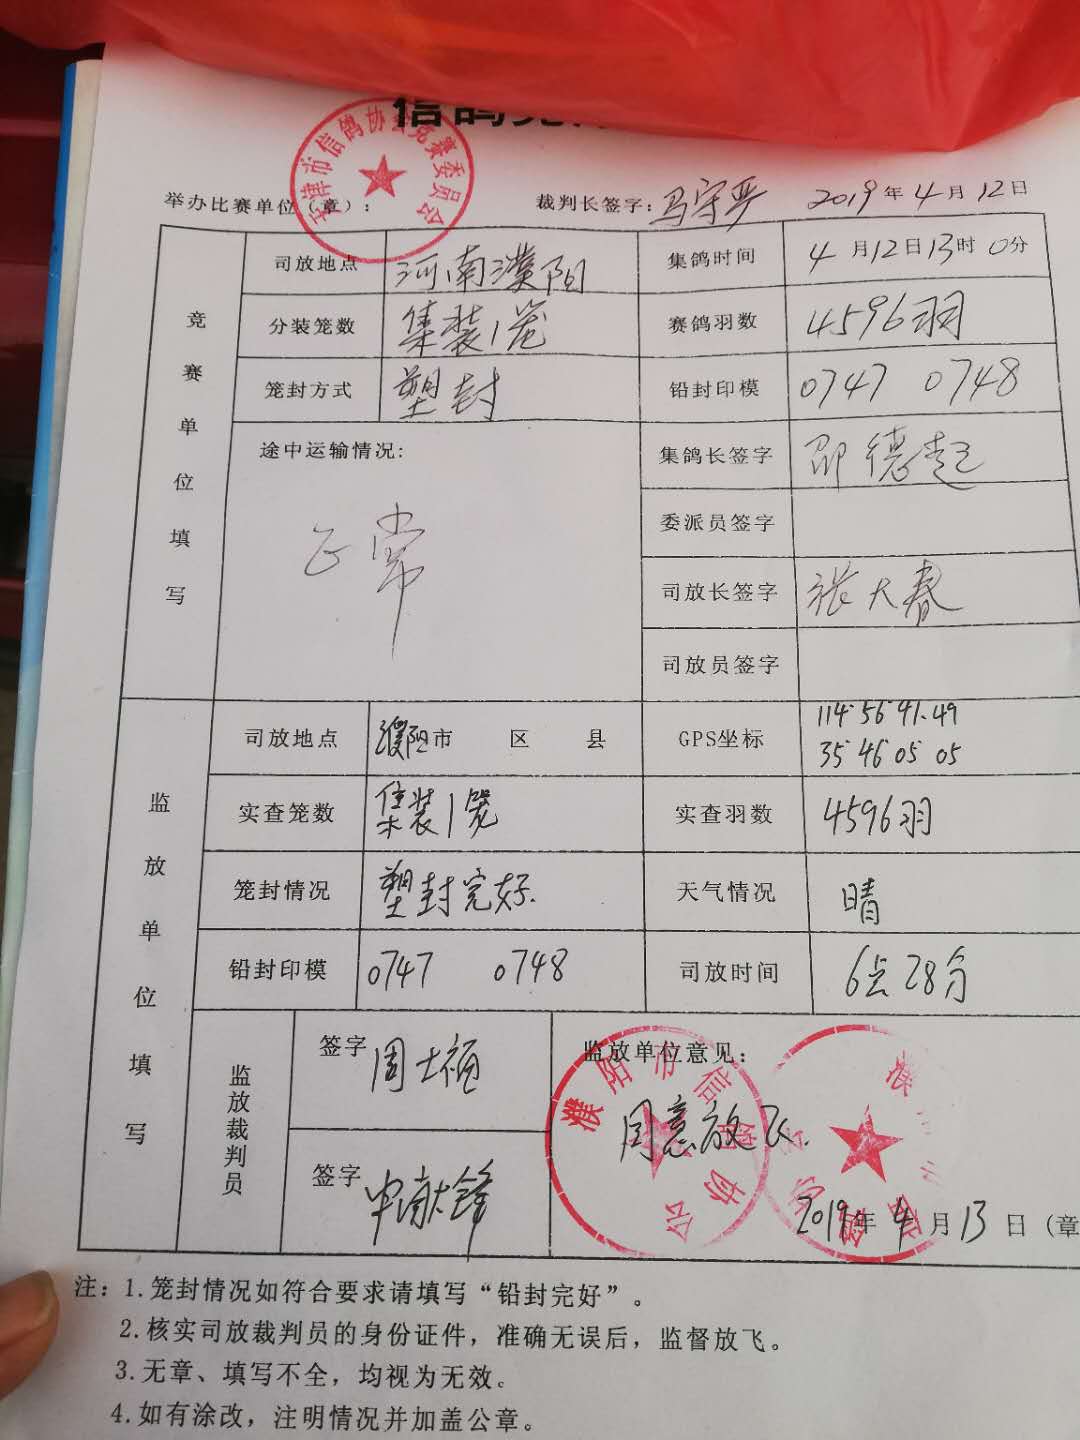 信鸽竞
天津市信鸽协会竞赛委员会
举办比赛单位（章）： 裁判长签字: 马守平 2019年4月12日
竞赛单位填写
司放地点 河南濮阳 集鸽时间 4月12日13时0分
分装笼数 集装1笼 赛鸽羽数 4596羽
笼封方式 塑封 铅封印模 0747 0748
途中运输情况: 正常
集鸽长签字 邵德起
委派员签字
司放长签字 张大春
司放员签字
监放单位填写
司放地点 濮阳市 区 县 GPS坐标 114°56′41.49
35°46′05 05
实查笼数 集装1笼 实查羽数 4596羽
笼封情况 塑封完好. 天气情况 晴
铅封印模 0747 0748 司放时间 6点28分
监放裁判员
签字 周士福
签字 申献锋
监放单位意见：
同意放飞.
濮阳市信鸽协会
2019年4月13日（章
注：1.笼封情况如符合要求请填写“铅封完好”。
2.核实司放裁判员的身份证件，准确无误后，监督放飞。
3.无章、填写不全，均视为无效。
4.如有涂改，注明情况并加盖公章。